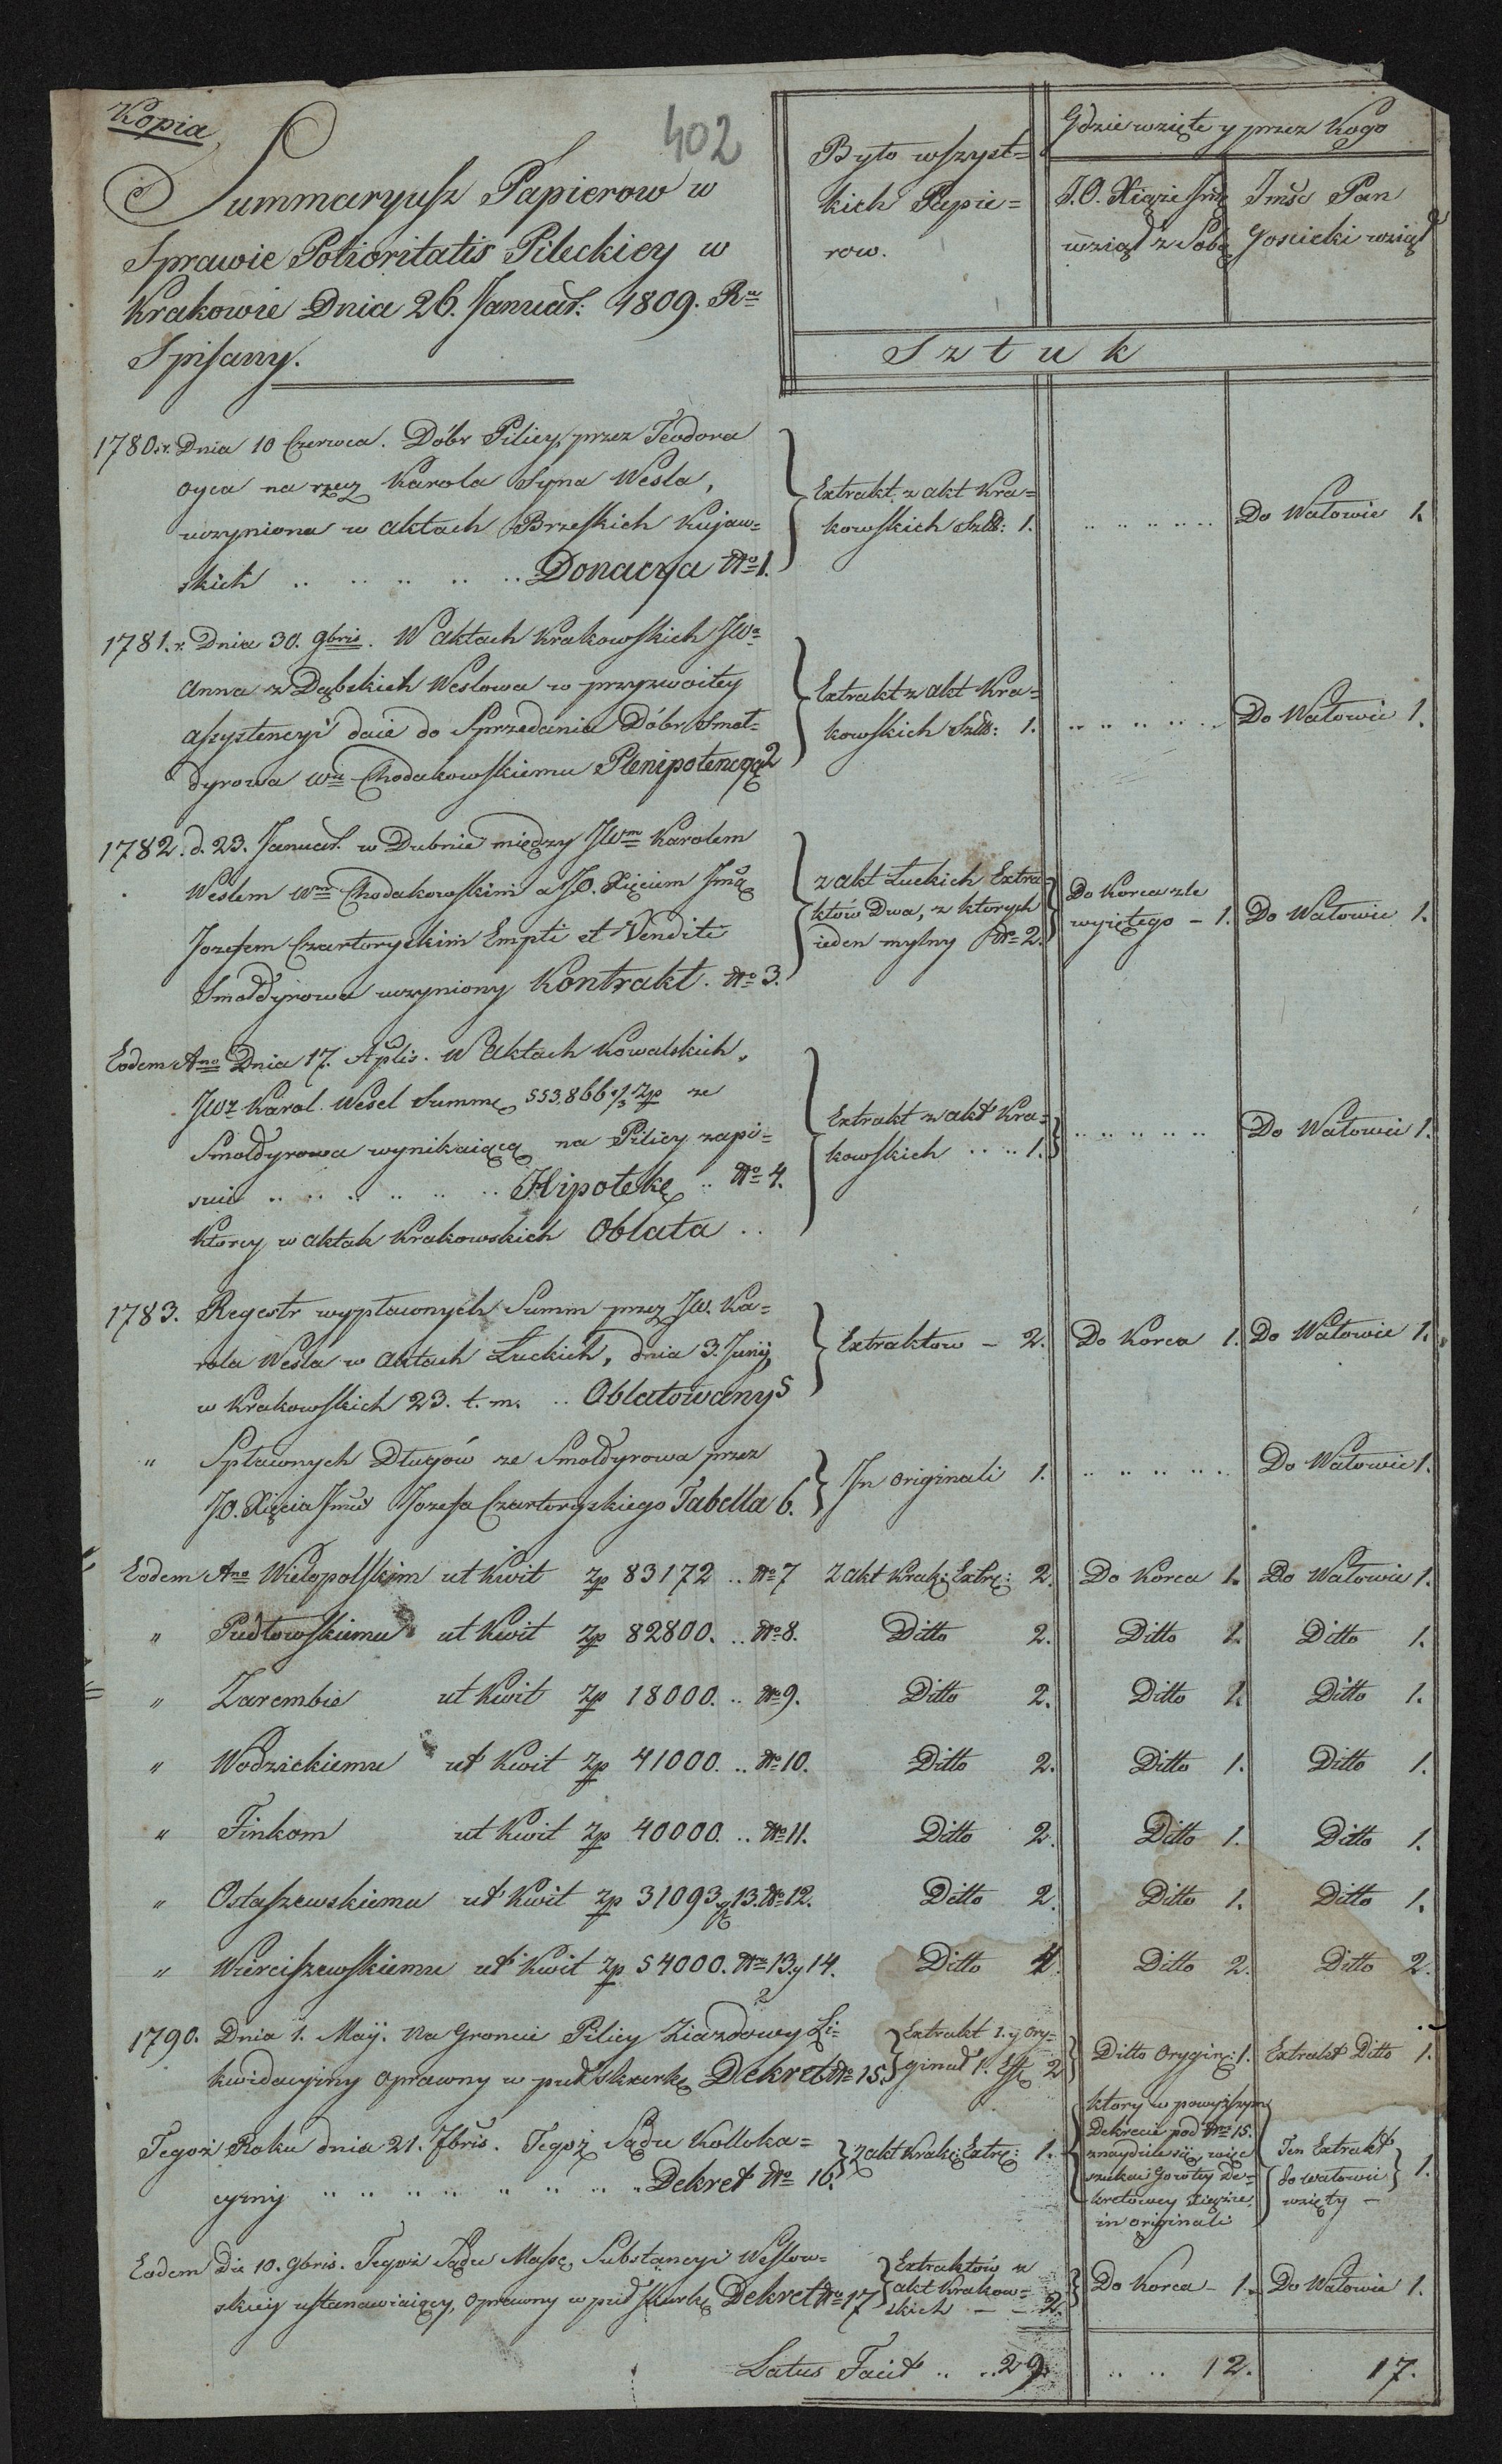 Kopia
402
Summaryusz Papierow w
Sprawie Potioritatis Pileckiey w
Krakowie Dnia 26. Januar: 1809. Ru
Spisany.
Było wszyst=
kich Papie=
row.
Gdzie wzięte y przez Kogo
J.O. Xiąże Jmć
wziął z Sobą
Jmść Pan
Gosiecki wziął
Sztuk
1780. r. Dnia 10 Czerwca. Dóbr Pilicy, przez Teodora
Oyca na rzecz Karola Syna Wesla,
uczyniona w Aktach Brzeskich Kujaw=
skich .. .. .. .. .. Donacya No 1.
Extrakt z akt Kra=
kowskich Szt: 1.
.. .. .. .. ..
Do Watowic 1.
1781. r. Dnia 30. 9bris. W Aktach Krakowskich JWa
Anna z Dąbskich Weslowa w przyzwoitey
Assystencyi daie do Sprzedania Dóbr Smoł=
dyrowa Wu Chodakowskiemu Plenipotencyą 2
Extrakt z akt Kra=
kowskich Szt: 1.
.. .. .. .. ..
Do Watowic 1.
1782. d. 23. Januar. w Dubnie między JWm Karolem
Weslem Wm Chodakowskim a J.O. Xięciem Jmą
Jozefem Czartoryskim Empti et Venditi
Smołdyrowa uczyniony Kontrakt. No 3.
z akt Łuckich Extra=
któw Dwa, z których
ieden mylny No 2.
Do Korca zle
wyiętego - 1.
Do Watowic 1.
Eodem Ano Dnia 17. Aplis. W Aktach Kowalskich,
JWz Karol Wesel Summę 553.866 1/3 zp ze
Smołdyrowa wynikaiącą na Pilicy zapi=
suie .. .. .. .. .. .. Hipotekę .. No 4.
ktorey w aktak Krakowskich Oblata ..
Extrakt z akt Kra=
kowskich .. .. 1.
.. .. .. .. ..
Do Watowic 1.
1783. Regestr wypłaconych Summ przez JW. Ka=
rola Wesla w Aktach Łuckich, dnia 3. Junij,
w Krakowskich 23. t. m. .. Oblatowany 5
Extraktow - 2.
Do Korca 1.
Do Watowic 1.
" Spłaconych Długów ze Smołdyrowa przez
J.O. Xięcia Jmci Jozefa Czartoryskiego Tabella 6.
In originali 1.
.. .. .. .. ..
Do Watowic 1.
Eodem Ano Wielopolskim ut Kwit zp 83172 .. No 7 Z akt Krak: Extr: 2. Do Korca 1. Do Watowic 1.
" Pudłowskiemu ut Kwit zp 82800. .. No 8. Ditto 2. Ditto 1. Ditto 1.
" Zarembie ut Kwit zp 18000. .. No 9. Ditto 2. Ditto 1. Ditto 1.
" Wodzickiemu ut Kwit zp 41000. .. No 10. Ditto 2. Ditto 1. Ditto 1.
" Finkom ut Kwit zp 40000. .. No 11. Ditto 2. Ditto 1. Ditto 1.
" Ostaszewskiemu ut Kwit zp 31093 g 13. No 12. Ditto 2. Ditto 1. Ditto 1.
" Wierciszewskiemu ut Kwit zp 54000. No 13. y 14. Ditto 4. Ditto 2. Ditto 2.
1790. Dnia 1. Maij. Na Groncie Pilicy Ziazdowy Li=
kwidacyiny oprawny w puł skurkę Dekret No 15.
Extrakt 1. y Ory=
ginał 1. 2
Ditto Orygin: 1.
Extrakt Ditto 1.
Tegoż Roku dnia 21. 7bris. Tegoż Sądu Kolloka=
cyiny .. .. .. .. .. .. .. .. Dekret No 16.
z akt Krak: Extr: 1.
ktory w powyższym
Dekrecie pod No 15.
znayduie się, więc
szukać Go w tey De=
kretowey Xiędze,
in originali
Ten Extrakt
do Watowic
wzięty -
1.
Eodem Die 10. 9bris. Tegoż Sądu Massę, Substancyi Wesslow=
skiey ustanawiaiący, Oprawny w puł Skurkę Dekret No 17
Extraktów z
akt Krakow=
skich - - 2.
Do Korca - 1.
Do Watowic 1.
Latus Facit .. .. 29. .. .. 12. 17.